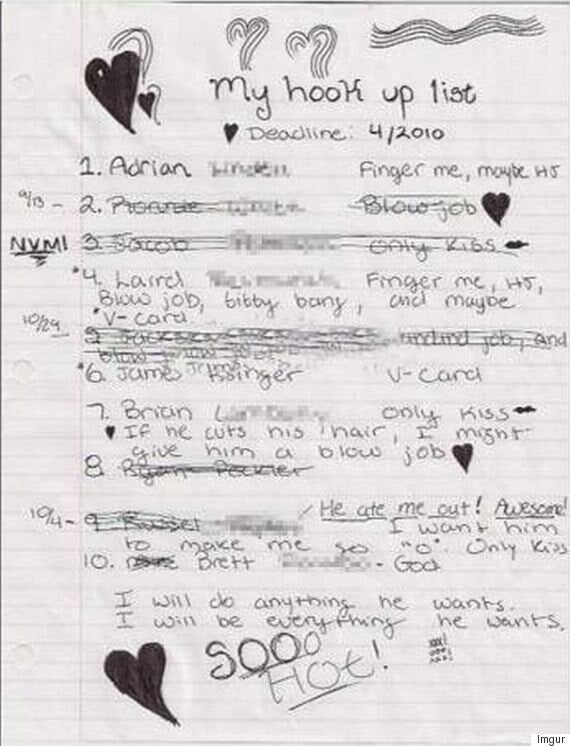 My hook up list
Deadline: 4/2010
1. Adrian Finger me, maybe HJ
9/13 - 2. Blow job
NVM! 3. Jacob only kiss
*4. Laird Finger me, HJ,
Blow job, tibby bang, and maybe
*V-card
10/29 5. job, and
blow
*6. V-card
7. Brian only kiss
If he cuts his hair, I might
give him a blow job
8
10/4 - 9. He ate me out! Awesome!
I want him
to make me go "o". Only kiss
10. Brett - God
I will do anything he wants.
I will be everything he wants.
SOOO
HOT!